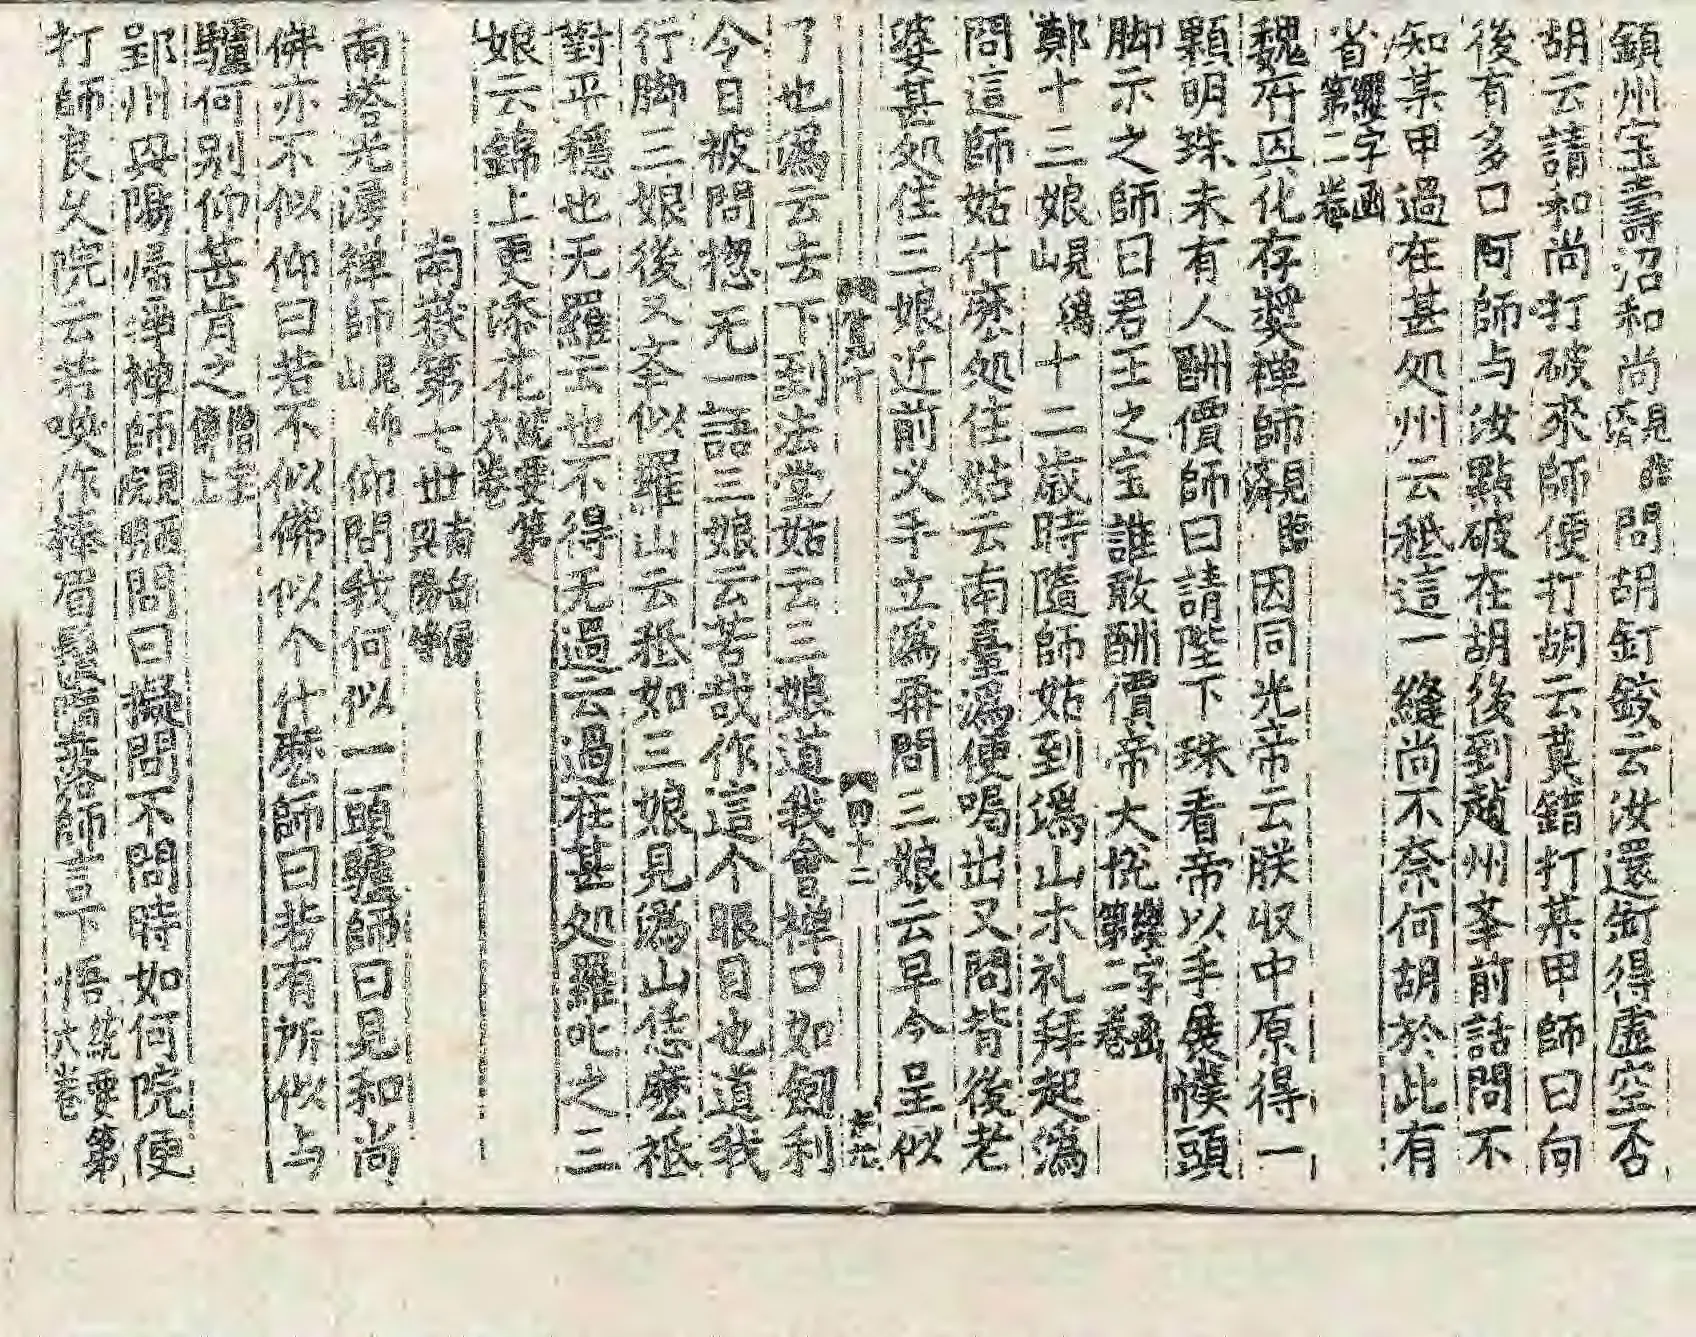 鎮州宝壽沼和尚見臨濟問胡釘鉸云汝還釘得虚空否
胡云請和尚打破來師便打胡云莫錯打某甲師曰向
後有多口阿師与汝點破在胡後到趙州峯前話問不
知某甲過在甚処州云秖這一縫尚不奈何胡於此有
省纓字函第二卷
魏府興化存奬禅師見臨濟因同光帝云朕収中原得一
顆明珠未有人酬價師曰請陛下珠看帝以手展幞頭
脚示之師曰君王之宝誰敢酬價帝大悦纓字函第二卷
鄭十三娘見潙十二歳時隨師姑到潙山才礼拜起潙
問這師姑什麽処住姑云南臺潙便喝出又問背後老
婆甚処住三娘近前乂手立潙再問三娘云早今呈似
了也潙云去下到法堂姑云三娘道我會禅口如釰利
今日被問揔无一語三娘云苦哉作這个眼目也道我
行脚三娘後又峯似羅山云秖如三娘見潙山恁麽秖
對平穩也无羅云也不得无過云過在甚処羅叱之三
娘云錦上更添花統要第六卷
南嶽第七世
南塔光湧禅師見仰仰問我何似一頭驢師曰見和尚
佛亦不似仰曰若不似佛似个什麽師曰若有所似与
驢何别仰甚肯之僧宝傳上
郢州芭陽㷌禅師見南院問曰擬問不問時如何院便
打師良久院云若喚作棒眉鬚墮落師言下悟統要第六卷